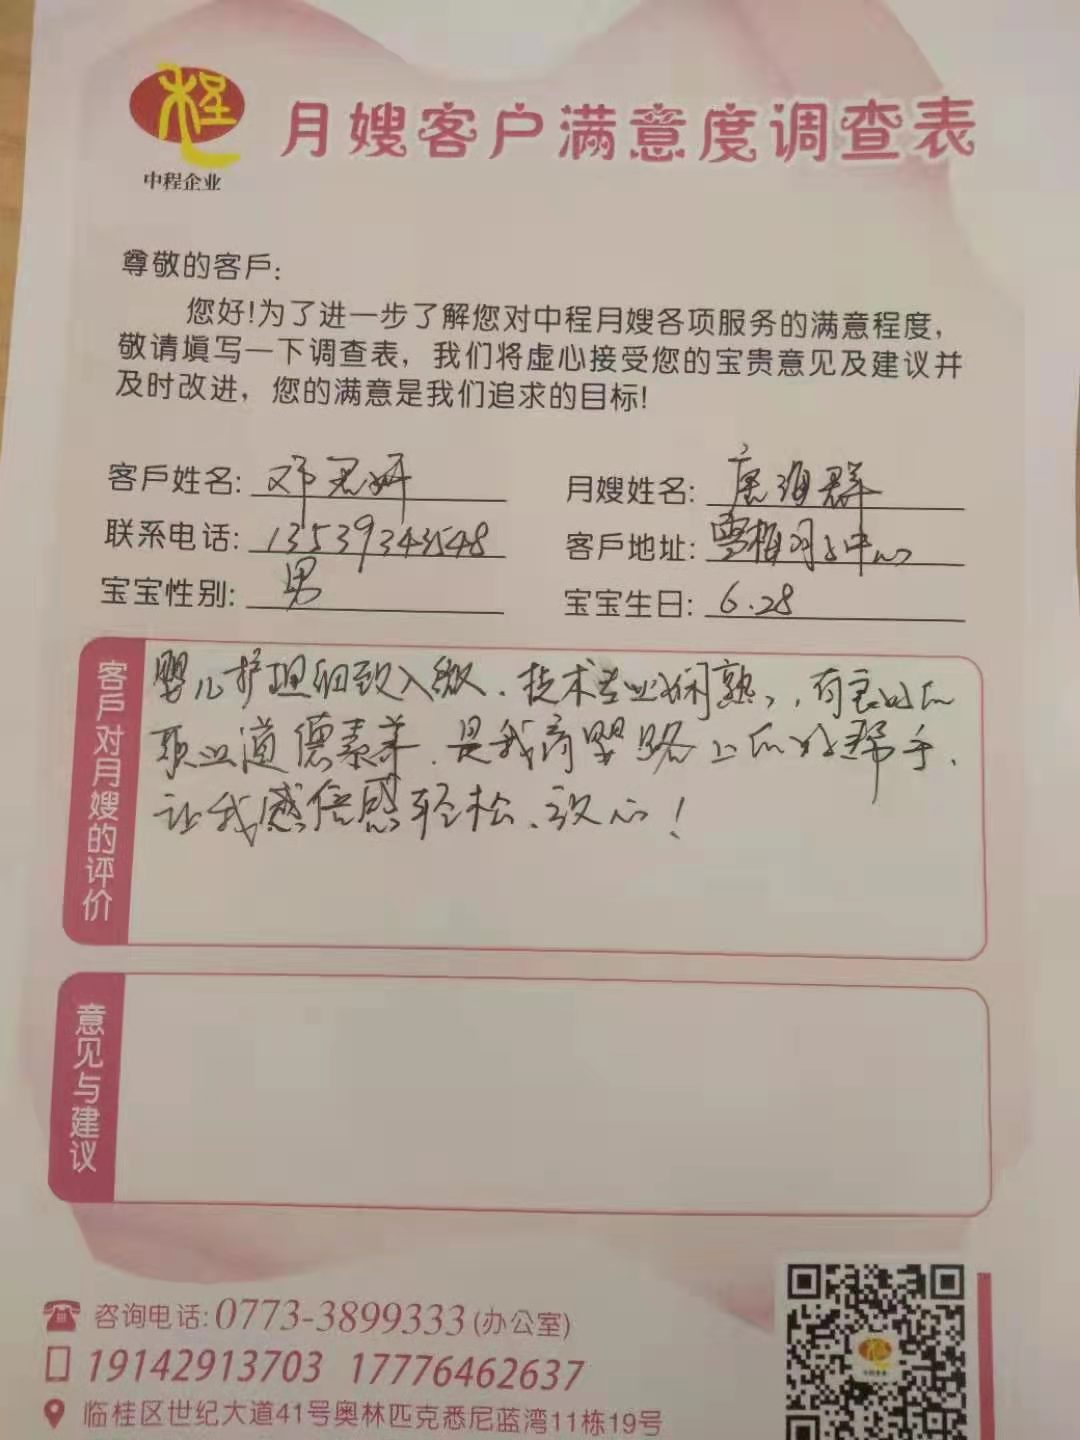 程
中程企业
月嫂客户满意度调查表
尊敬的客戶:
您好!为了进一步了解您对中程月嫂各项服务的满意程度,
敬请填写一下调查表,我们将虚心接受您的宝贵意见及建议并
及时改进,您的满意是我们追求的目标!
客戶姓名: 邓君妍 月嫂姓名: 唐海群
联系电话: 13539343548 客戶地址: 雪梅月子中心
宝宝性别: 男 宝宝生日: 6.28
客戶对月嫂的评价
婴儿护理细致入微、技术专业娴熟、有良好的
职业道德素养、是我育婴路上的好帮手、
让我感倍感轻松、放心!
意见与建议
咨询电话:0773-3899333(办公室)
19142913703 17776462637
临桂区世纪大道41号奥林匹克悉尼蓝湾11栋19号